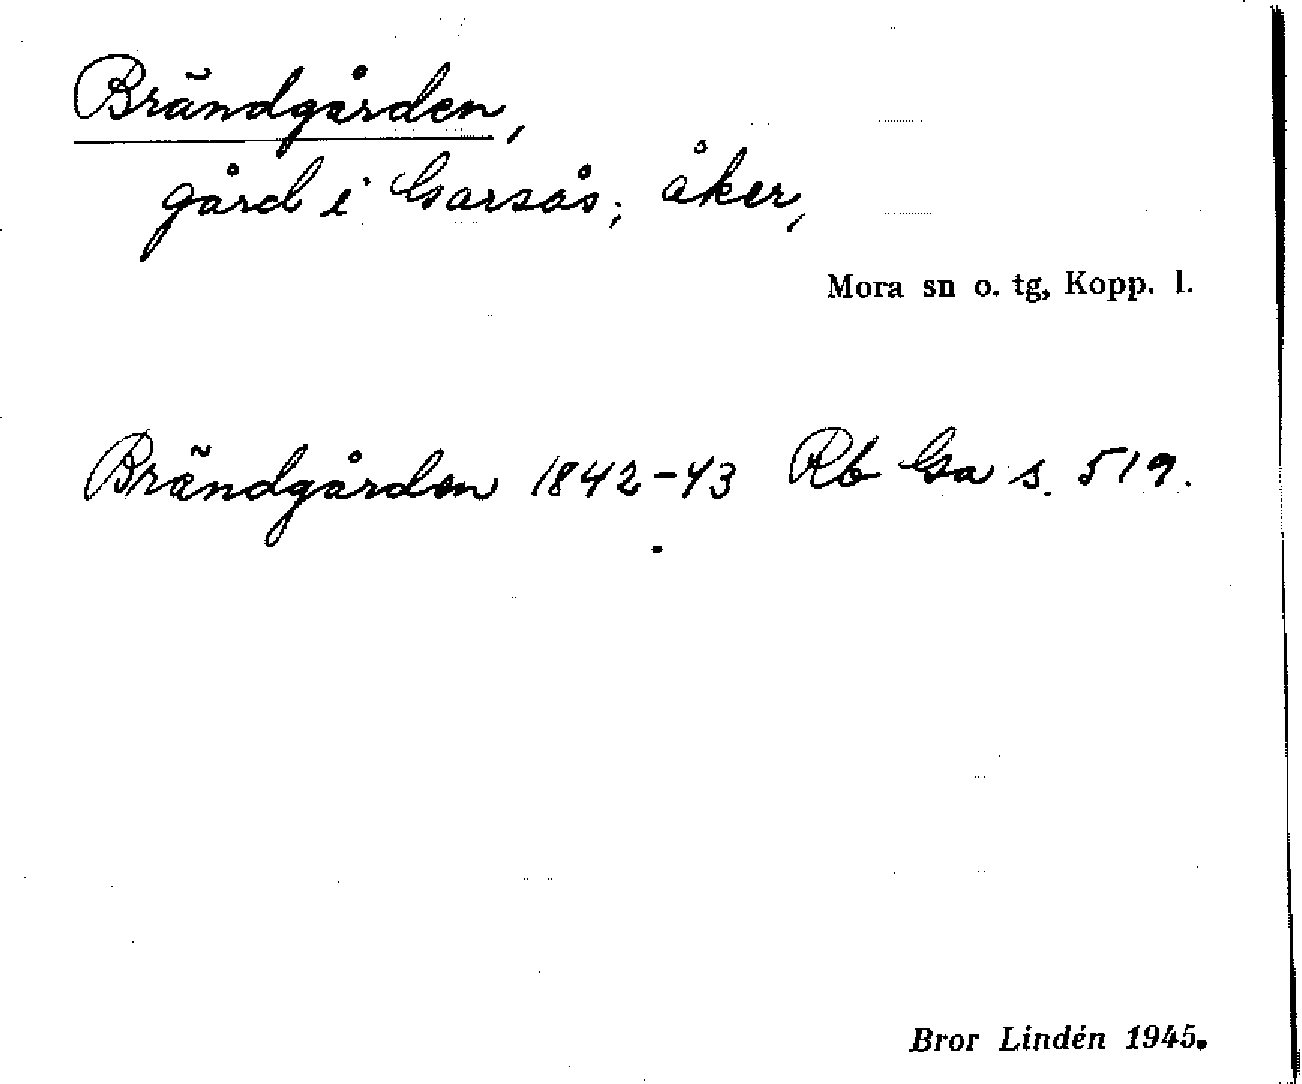 Brändgården,
gård i Garsås; åker,
Mora sn o. tg, Kopp. l.
Brändgården 1842-43 Rb Ga s. 519.
Bror Lindén 1945.